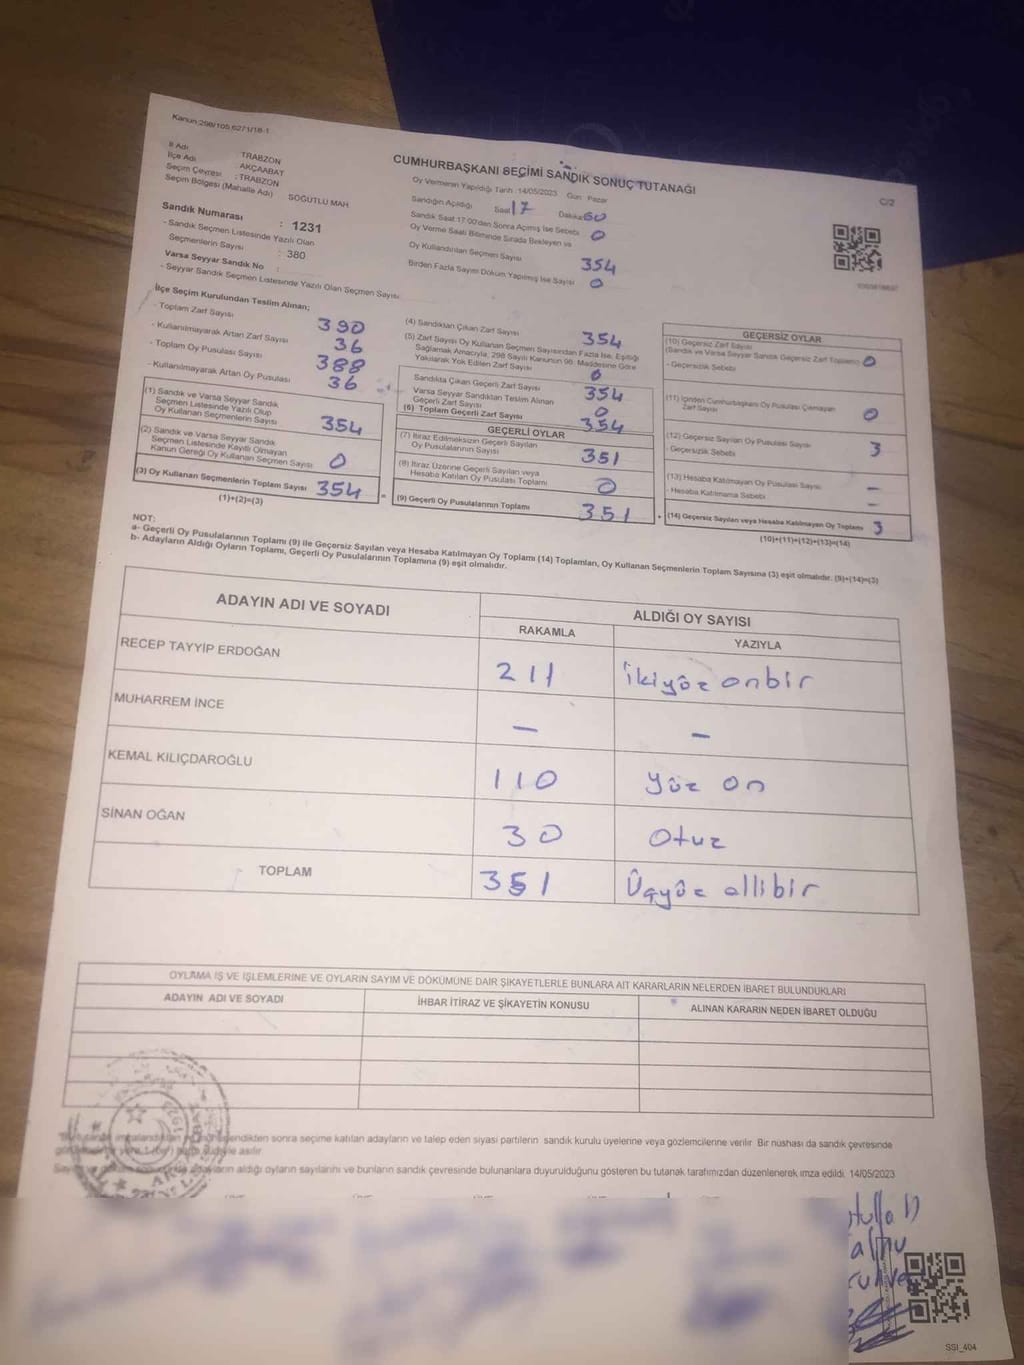 Kanun:298/105,6271/18-1
İl Adı TRABZON
İlçe Adı AKÇAABAT
Seçim Çevresi : TRABZON
Seçim Bölgesi (Mahalle Adı) SÖĞÜTLÜ MAH.
Sandık Numarası : 1231
- Sandık Seçmen Listesinde Yazılı Olan
Seçmenlerin Sayısı : 380
Varsa Seyyar Sandık No :
- Seyyar Sandık Seçmen Listesinde Yazılı Olan Seçmen Sayısı
CUMHURBAŞKANI SEÇİMİ SANDIK SONUÇ TUTANAĞI
C/2
Oy Vermenin Yapıldığı Tarih : 14/05/2023 Gün Pazar
Sandığın Açıldığı Saat 17 Dakika 60
Sandık Saat 17:00'den Sonra Açılmış İse Sebebi 0
Oy Verme Saati Bitiminde Sırada Bekleyen ve
Oy Kullandırılan Seçmen Sayısı 354
Birden Fazla Sayım Döküm Yapılmış İse Sayısı 0
İlçe Seçim Kurulundan Teslim Alınan;
- Toplam Zarf Sayısı 390
- Kullanılmayarak Artan Zarf Sayısı 36
- Toplam Oy Pusulası Sayısı 388
- Kullanılmayarak Artan Oy Pusulası 36
(1) Sandık ve Varsa Seyyar Sandık
Seçmen Listesinde Yazılı Olup
Oy Kullanan Seçmenlerin Sayısı 354
(2) Sandık ve Varsa Seyyar Sandık
Seçmen Listesinde Kayıtlı Olmayan
Kanun Gereği Oy Kullanan Seçmen Sayısı 0
(3) Oy Kullanan Seçmenlerin Toplam Sayısı 354
(1)+(2)=(3)
(4) Sandıktan Çıkan Zarf Sayısı 354
(5) Zarf Sayısı Oy Kullanan Seçmen Sayısından Fazla İse, Eşitliği
Sağlamak Amacıyla, 298 Sayılı Kanunun 98. Maddesine Göre
Yakılarak Yok Edilen Zarf Sayısı 0
Sandıkta Çıkan Geçerli Zarf Sayısı 354
Varsa Seyyar Sandıktan Teslim Alınan
Geçerli Zarf Sayısı 0
(6) Toplam Geçerli Zarf Sayısı 354
GEÇERLİ OYLAR
(7) İtiraz Edilmeksizin Geçerli Sayılan
Oy Pusulalarının Sayısı 351
(8) İtiraz Üzerine Geçerli Sayılan veya
Hesaba Katılan Oy Pusulası Toplamı 0
(9) Geçerli Oy Pusulalarının Toplamı 351
GEÇERSİZ OYLAR
(10) Geçersiz Zarf Sayısı
(Sandık ve Varsa Seyyar Sandık Geçersiz Zarf Toplamı) 0
- Geçersizlik Sebebi
(11) İçinden Cumhurbaşkanı Oy Pusulası Çıkmayan
Zarf Sayısı 0
(12) Geçersiz Sayılan Oy Pusulası Sayısı 3
- Geçersizlik Sebebi
(13) Hesaba Katılmayan Oy Pusulası Sayısı -
- Hesaba Katılmama Sebebi -
(14) Geçersiz Sayılan veya Hesaba Katılmayan Oy Toplamı 3
(10)+(11)+(12)+(13)=(14)
NOT:
a- Geçerli Oy Pusulalarının Toplamı (9) ile Geçersiz Sayılan veya Hesaba Katılmayan Oy Toplamı (14) Toplamları, Oy Kullanan Seçmenlerin Toplam Sayısına (3) eşit olmalıdır. (9)+(14)=(3)
b- Adayların Aldığı Oyların Toplamı, Geçerli Oy Pusulalarının Toplamına (9) eşit olmalıdır.
ADAYIN ADI VE SOYADI ALDIĞI OY SAYISI
RAKAMLA YAZIYLA
RECEP TAYYİP ERDOĞAN 211 İkiyüz onbir
MUHARREM İNCE - -
KEMAL KILIÇDAROĞLU 110 yüz on
SİNAN OĞAN 30 Otuz
TOPLAM 351 Üçyüz ellibir
OYLAMA İŞ VE İŞLEMLERİNE VE OYLARIN SAYIM VE DÖKÜMÜNE DAİR ŞİKAYETLERLE BUNLARA AİT KARARLARIN NELERDEN İBARET BULUNDUKLARI
ADAYIN ADI VE SOYADI İHBAR İTİRAZ VE ŞİKAYETİN KONUSU ALINAN KARARIN NEDEN İBARET OLDUĞU
sonra seçime katılan adayların ve talep eden siyasi partilerin sandık kurulu üyelerine veya gözlemcilerine verilir. Bir nüshası da sandık çevresinde
asılır.
adayların aldığı oyların sayılarını ve bunların sandık çevresinde bulunanlara duyurulduğunu gösteren bu tutanak tarafımızdan düzenlenerek imza edildi. 14/05/2023
SSI_404